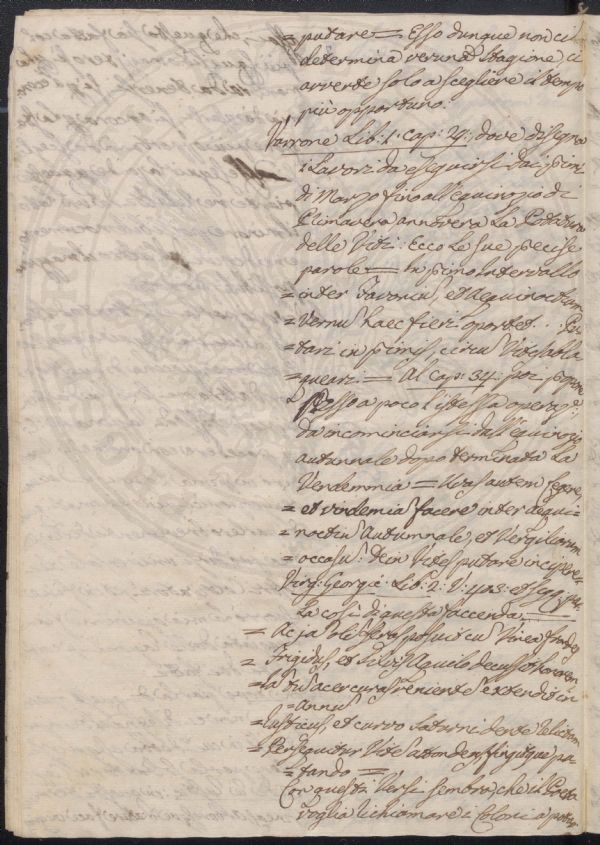 = putare = Esso dunque non ci
determina veruna Stagione, ci
avverte solo a scegliere il tempo
più opportuno.
Varrone Lib: 1. cap: 29:, dove disegna
i Lavori da eseguirsi dai primi
di Marzo fino all'equinozio di
Primavera annovera la Potatura
delle Viti: Ecco le sue precise
parole = In primo intervallo
= inter Favoniu, et Aequinoctium
= vernu haec fieri oportet . . Pu-
= tari in primis, circu Vites abla-
= queari: = Al cap: 34: poi
Presso a poco l'istessa operaz:e
da incominciarsi dall'equinozio
autunnale dopo terminata la
Vendemmia = Uvas autem legere,
= et vindemia facere inter aequi-
= noctiu Autumnale, et Vergiliarum
= occasu: Dein Vites putare incipere =
Virg: Georgic: Lib: 2: V: 403: et seqq: par-
la così di questa faccenda =
= Ac ja oli seras posuit cu Vinea frondes
= Frigidus, et Silvis Aquilo decussit honorem
= Ja tu acer curas venientes extendit in
= annu
= Rusticus, et curvo Saturni dente relictam
= Persequitur Vite attondens, fingitque pu-
= tando =
Con questi Versi sembra, che il Poeta
voglia richiamare i Coloni a